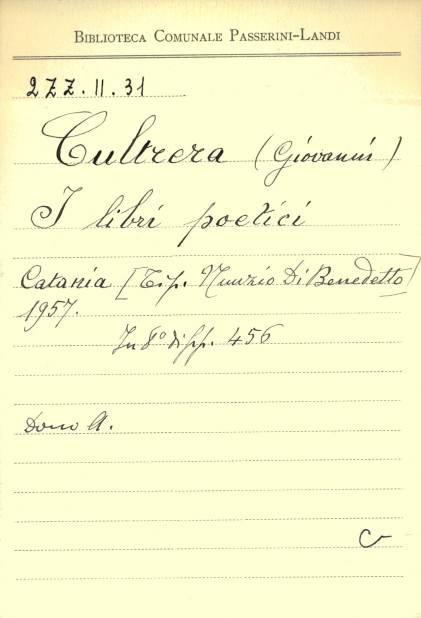 BIBLIOTECA COMUNALE PASSERINI-LANDI
2ZZ.II.31
Cultrera (Giovanni)
I libri poetici
Catania [Tip. Nunzio Di Benedetto]
1957.
In 8° di pp. 456
Dono A.